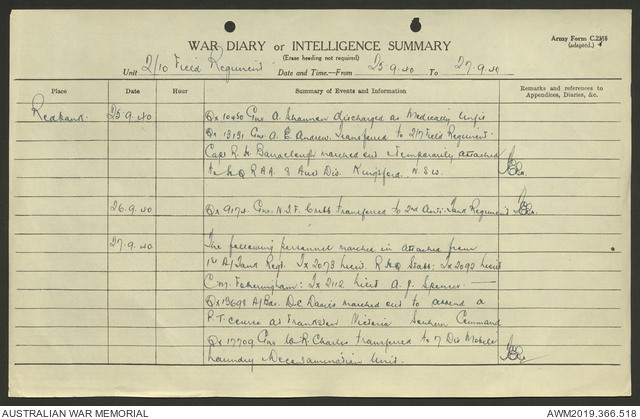 Army Form C.2118
(adapted.)
WAR DIARY or INTELLIGENCE SUMMARY
(Erase heading not required)
Unit 2/10 Field Regiment Date and Time.—From 25.9.40 To 27.9.40
Place Date Hour Summary of Events and Information Remarks and references to Appendices, Diaries, &c.
Redbank. 25.9.40 Qx 10450 Gnr A. Shannon discharged as Medically Unfit
Qx 13131 Gnr A. E. Andrew. Transferred to 2/7 Field Regiment.
Capt R. H. Barraclough marched out & temporarily attached
to HQ RAA. 8 Aust Div. Kingsford. N.S.W.
26.9.40 Qx 9174 Gnr. N.J.F. transferred to 2nd Anti-Tank Regiment
27.9.40 The following personnel marched in attached from
1st A/Tank Regt. Tx 2073 Lieut. R.H.G. : Tx 2092 Lieut
C.M. Fotheringham: Tx 2112 Lieut A. J. Spencer.
Qx 13698 A/Bdr. D.C. Davis marched out to attend a
P.T. course at Frankston Victoria Southern Command
Qx 17709 Gnr W. R. Charles transferred to 7 Div Mobile
Laundry & Decontamination Unit.
AUSTRALIAN WAR MEMORIAL AWM2019.366.518